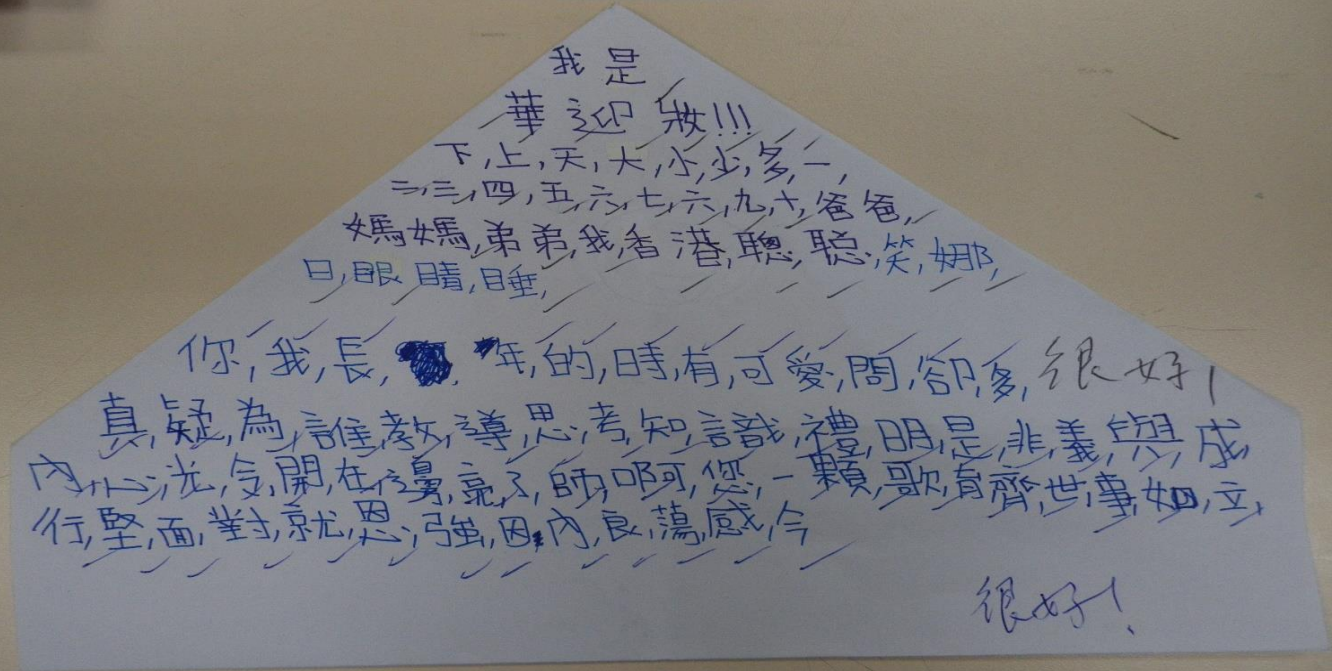 我是
華迎妝!!!
下,上,天,大,小,少,多,一,
二,三,四,五,六,七,六,九,十,爸爸,
媽媽,弟弟,我,香港,聰,聪,笑,娜,
日,眼睛,睡,
你,我,長, 年,的,時,有,可愛,問,卻,多, 很好!
真,疑,為,誰,教,導,思,考,知,識,禮,明,是,非,義,與,成,
內,心,光,令,開,在,邊,亮,了,師,啊,您,一顆,歌,育,齊,世,事,如,立,
行,堅,面,對,就,恩,強,因,內,良,蕩,感,今
很好!